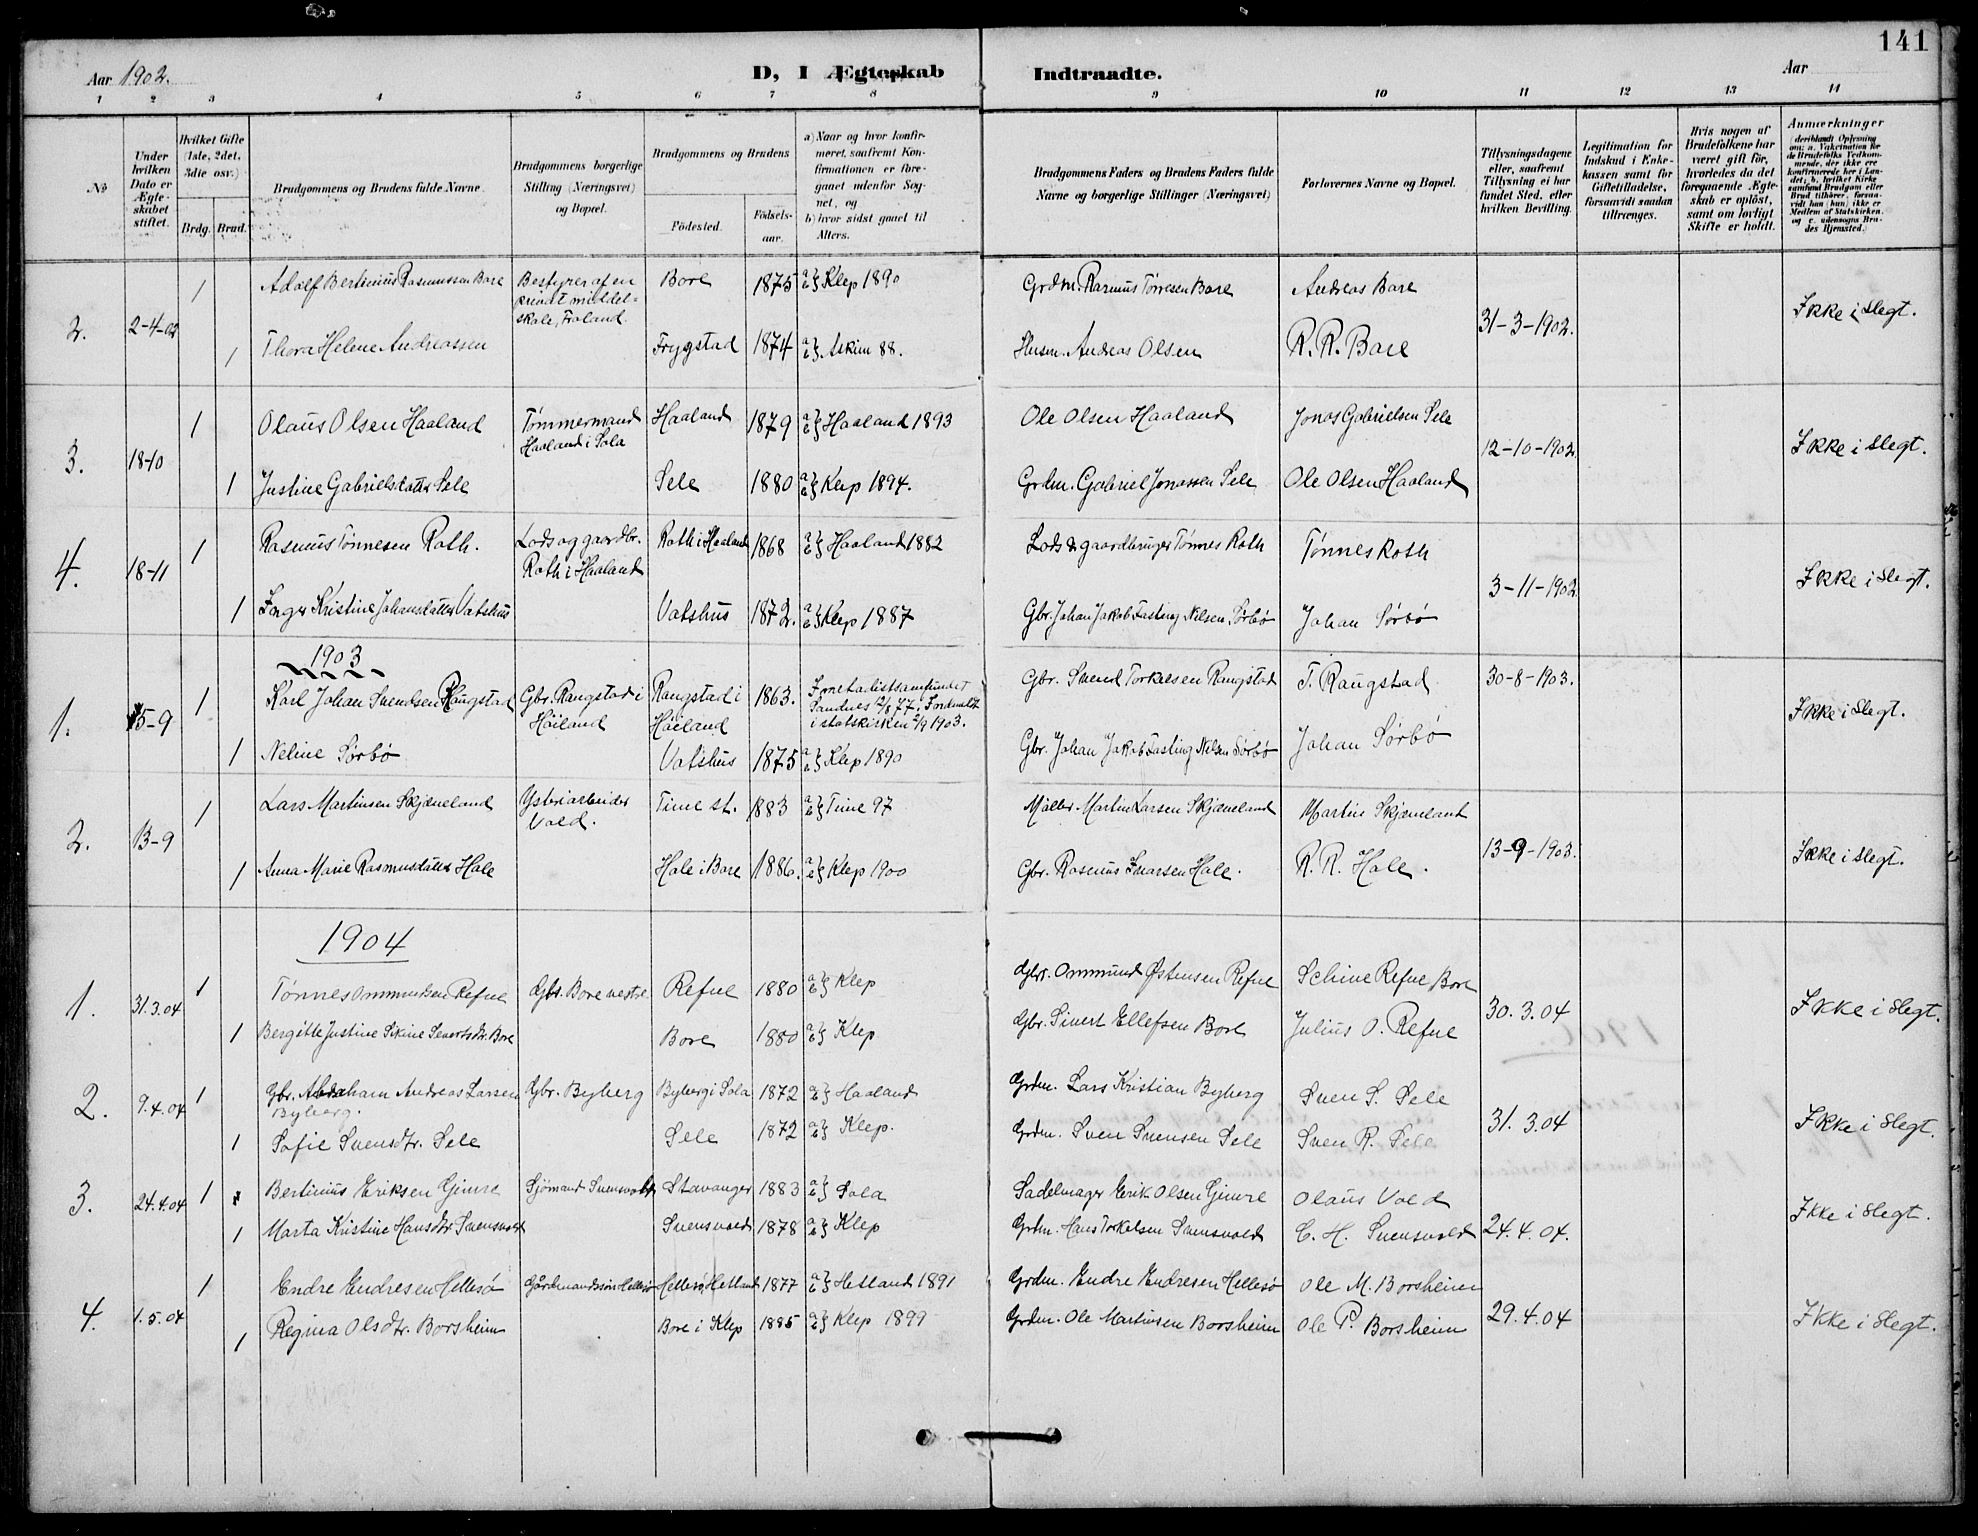 141
Aar 1902.
D, I Ægteskab
Indtraadte.
Aar
1 2 3 4 5 6 7 8 9 10 11 12 13 14
No
Under hvilken Dato er Ægteskabet stiftet.
Hvilket Gifte (1ste, 2det, 3die osv.)
Brdg. Brud.
Brudgommens og Brudens fulde Navne.
Brudgommens borgerlige Stilling (Næringsvei) og Bopæl.
Brudgommens og Brudens
Födested. Födsels-aar.
a) Naar og hvor konfirmeret, saafremt Konfirmationen er foregaaet udenfor Sognet, og
b) hvor sidst gaaet til Alters.
Brudgommens Faders og Brudens Faders fulde Navne og borgerlige Stillinger (Næringsvei)
Forlovernes Navne og Bopæl.
Tillysningsdagene eller, saafremt Tillysning ei har fundet Sted, efter hvilken Bevilling.
Legitimation for Indskud i Enkekassen samt for Giftetilladelse, forsaavidt saadan tiltrænges.
Hvis nogen af Brudefolkene har været gift för, hvorledes da det foregaaende Ægteskab er oplöst, samt om lovligt Skifte er holdt.
Anmærkninger
2. 2-4-02 1 Adolf Bertinius Rasmussen Bore Bestyrer af en privat middelskole, Froland. Bore 1875 a} b} Klep 1890 Grdm. Rasmus Tønnesen Bore Andreas Bore 31-3-1902. Ikke i slegt.
1 Thora Helene Andreassen Trygstad 1874 a} b} Askim 88. Husm. Andreas Olsen R. R. Bore
3. 18-10 1 Olaus Olsen Haaland Tømmermand Haaland i Sola Haaland 1879 a} b} Haaland 1893 Ole Olsen Haaland Jonas Gabrielsen Sele 12-10-1902. Ikke i slegt.
1 Justine Gabrielsdatter Sele Sele 1880 a} b} Klep 1894. Grdm. Gabriel Jonassen Sele Ole Olsen Haaland
4. 18-11 1 Rasmus Tønnesen Roth. Lods og gaardbr. Roth i Haaland Roth i Haaland 1868 a} b} Haaland 1882 Lods & gaardbruger Tønnes Roth Tønnes Roth 3-11-1902. Ikke i slegt.
1 Inger Kristine Johansdatter Vatshus Vatshus 1872. a} b} Klep 1887 Gbr. Johan Jakob Fasting Nilsen Sørbø Johan Sørbø
1903
1. 15-9 1 Karl Johan Svendsen Raugstad Gbr. Raugstad i Høiland Raugstad i Høiland 1863. Sandnes 77. i statskirken 1903. Gbr. Svend Torkelsen Raugstad T. Raugstad 30-8-1903. Ikke i slegt.
1 Neline Sørbø Vatshus 1875 a} b} Klep 1890 Gbr. Johan Jakob Fasting Nilsen Sørbø Johan Sørbø
2. 13-9 1 Lars Martinsen Skjæveland Ysteriarbeider Vold. Time st. 1883 a} b} Time 97 Møller Martin Larsen Skjæveland Martin Skjæveland 13-9-1903. Ikke i slegt.
1 Anna Marie Rasmusdatter Hole Hole i Bore 1886. a} b} Klep 1900 Gbr. Rasmus Ivarsen Hole. R. R. Hole.
1904
1. 31.3.04 1 Tønnes Ommundsen Refve Gbr. Bore vestre Refve 1880 a} b} Klep Gbr. Ommund Østensen Refve Refve Bore 30.3.04 Ikke i slegt.
1 Bergitte Justine Sivertsdtr. Bore Bore 1880 a} b} Klep Gbr. Sivert Ellefsen Bore Julius O. Refve
2. 9.4.04 1 Gbr. Abraham Andreas Larsen Byberg. Gbr. Byberg Byberg i Sola 1872 a} b} Haaland Grdm. Lars Kristian Byberg Sven S. Sele 31.3.04 Ikke i slegt.
1 Sofie Svensdtr. Sele Sele 1872 a} b} Klep. Grdm. Sven Svensen Sele Sven R. Sele
3. 24.4.04 1 Bertinius Eriksen Gimre Sjömand Svensvold Stavanger 1883 a} b} Sola Sadelmager Erik Olsen Gimre Olaus Vold 24.4.04. Ikke i slegt.
1 Marta Kristine Hansdtr. Svensvold Svensvold 1878 a} b} Klep Grdm. Hans Torkelsen Svensvold C. H. Svensvold
4. 1.5.04 1 Endre Endresen Hellesø Gårdmandssøn Hellesø Hellesø, Hetland 1877 a} b} Hetland 1891 Grdm. Endre Endresen Hellesø Ole M. Borsheim 29.4.04 Ikke i slegt.
1 Regina Olsdtr. Borsheim Bore i Klep 1885 a} b} Klep 1899 Grdm. Ole Martinsen Borsheim Ole P. Borsheim